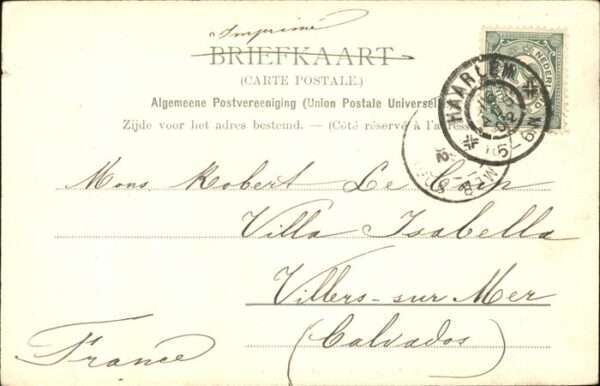 Imprimé
BRIEFKAART
(CARTE POSTALE.)
Algemeene Postvereeniging (Union Postale Universel
Zijde voor het adres bestemd. — (Côté réservé à l'a
HAARLEM
Mons. Robert Le
Villa Isabella
Villers-sur Mer
(Calvados)
France